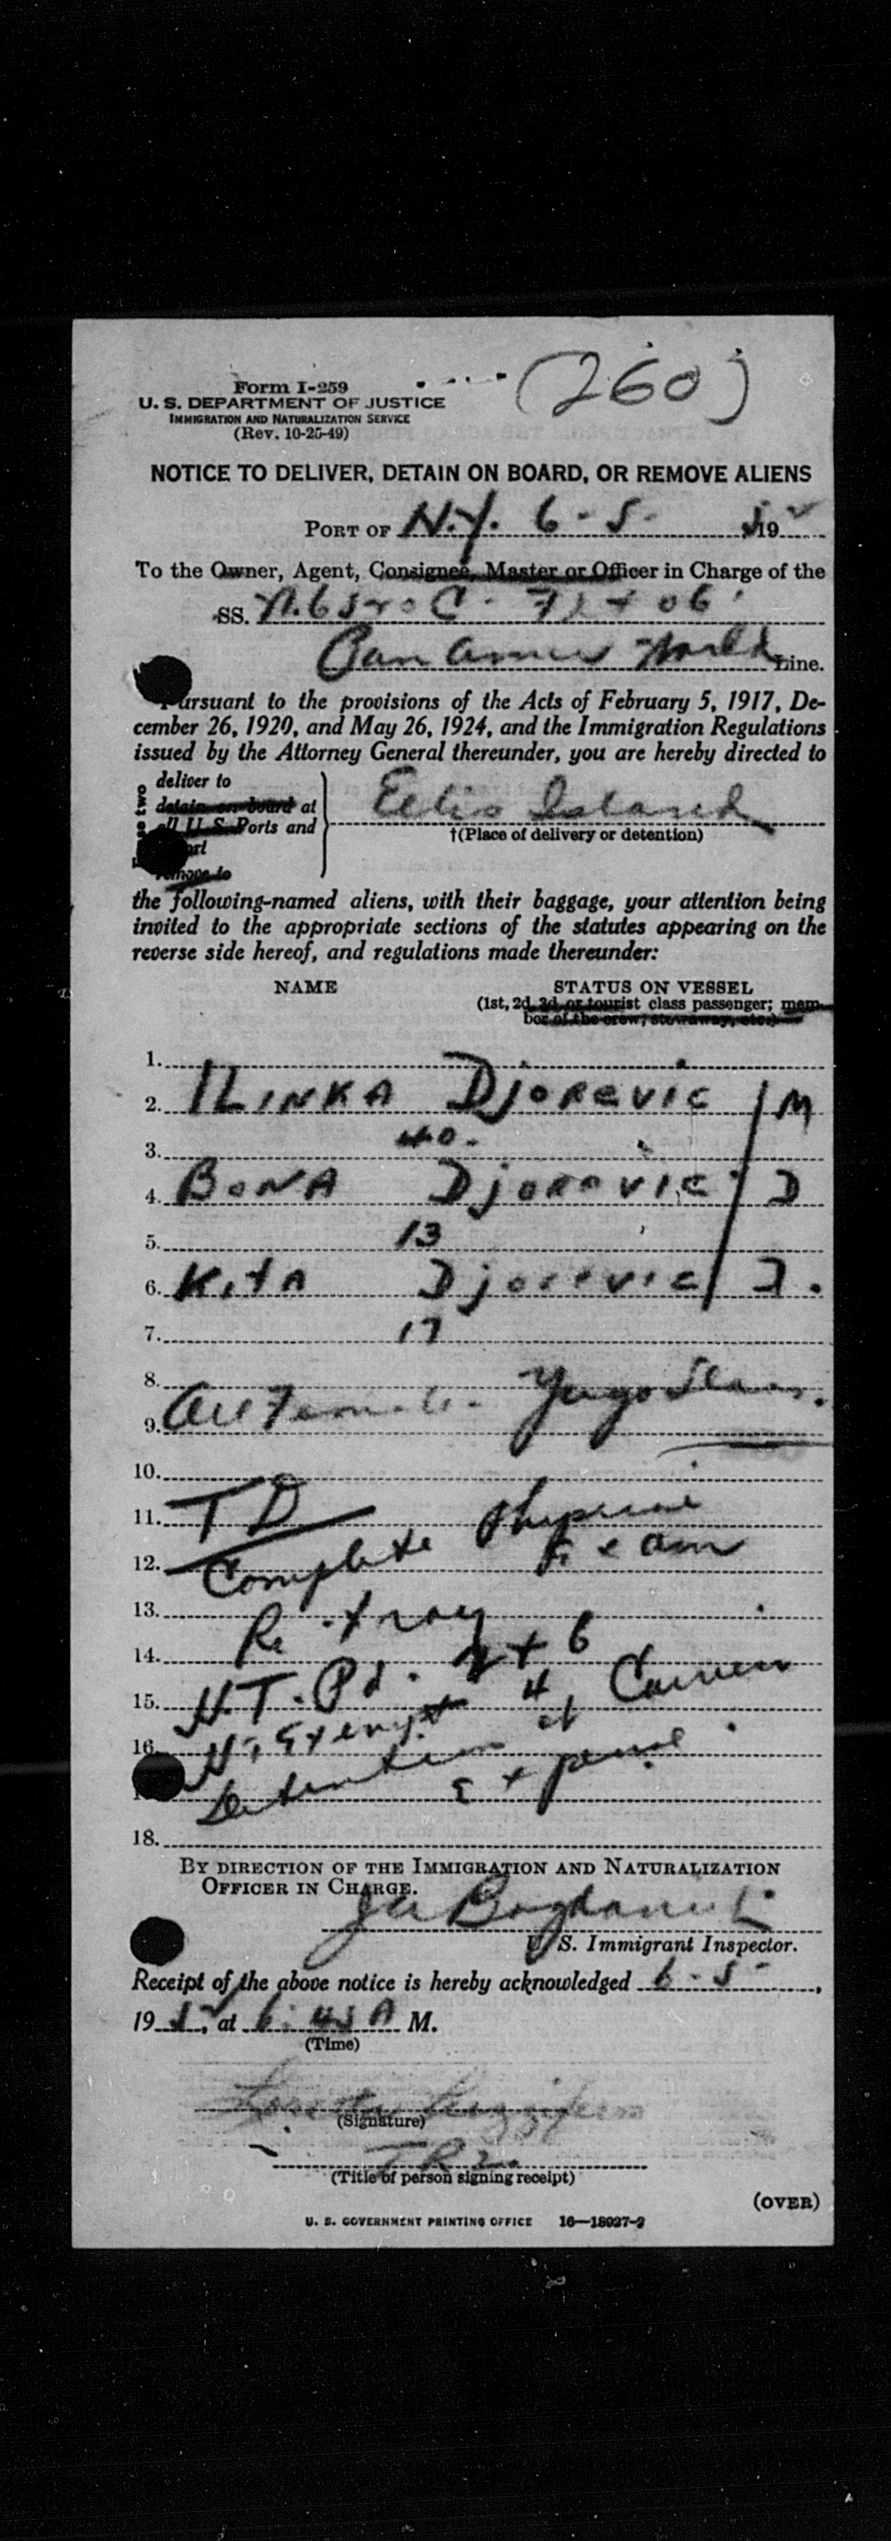 (260)
Form I-259
U. S. DEPARTMENT OF JUSTICE
IMMIGRATION AND NATURALIZATION SERVICE
(Rev. 10-25-49)
NOTICE TO DELIVER, DETAIN ON BOARD, OR REMOVE ALIENS
PORT OF N.Y. 6-5- 52 19
To the Owner, Agent, Consignee, Master or Officer in Charge of the
SS.
Pan Amer World Line.
Pursuant to the provisions of the Acts of February 5, 1917, De-
cember 26, 1920, and May 26, 1924, and the Immigration Regulations
issued by the Attorney General thereunder, you are hereby directed to
deliver to
detain on board at
all U. S. Ports and
remove to
two
Ellis Island
†(Place of delivery or detention)
the following-named aliens, with their baggage, your attention being
invited to the appropriate sections of the statutes appearing on the
reverse side hereof, and regulations made thereunder:
NAME STATUS ON VESSEL
(1st, 2d, 3d, or tourist class passenger; mem-
ber of the crew; stowaway, etc.)
1.
2. ILINKA Djorevic / M
3. 40.
4. BONA Djorevic D
5. 13
6. KITA Djorevic D.
7. 17
8.
9. All Female. Yugoslavs.
10.
11. TD
12. Complete Physical Exam
13. Re-xray
14. H.T. Pd. 2 + 6
15. H.T. Exempt 4
16. Detention at Carriers
Expense.
18.
BY DIRECTION OF THE IMMIGRATION AND NATURALIZATION
OFFICER IN CHARGE.
U. S. Immigrant Inspector.
Receipt of the above notice is hereby acknowledged 6-5-,
19 52, at 6:45 A M.
(Time)
(Signature)
(Title of person signing receipt)
(OVER)
U. S. GOVERNMENT PRINTING OFFICE 16—18027-2